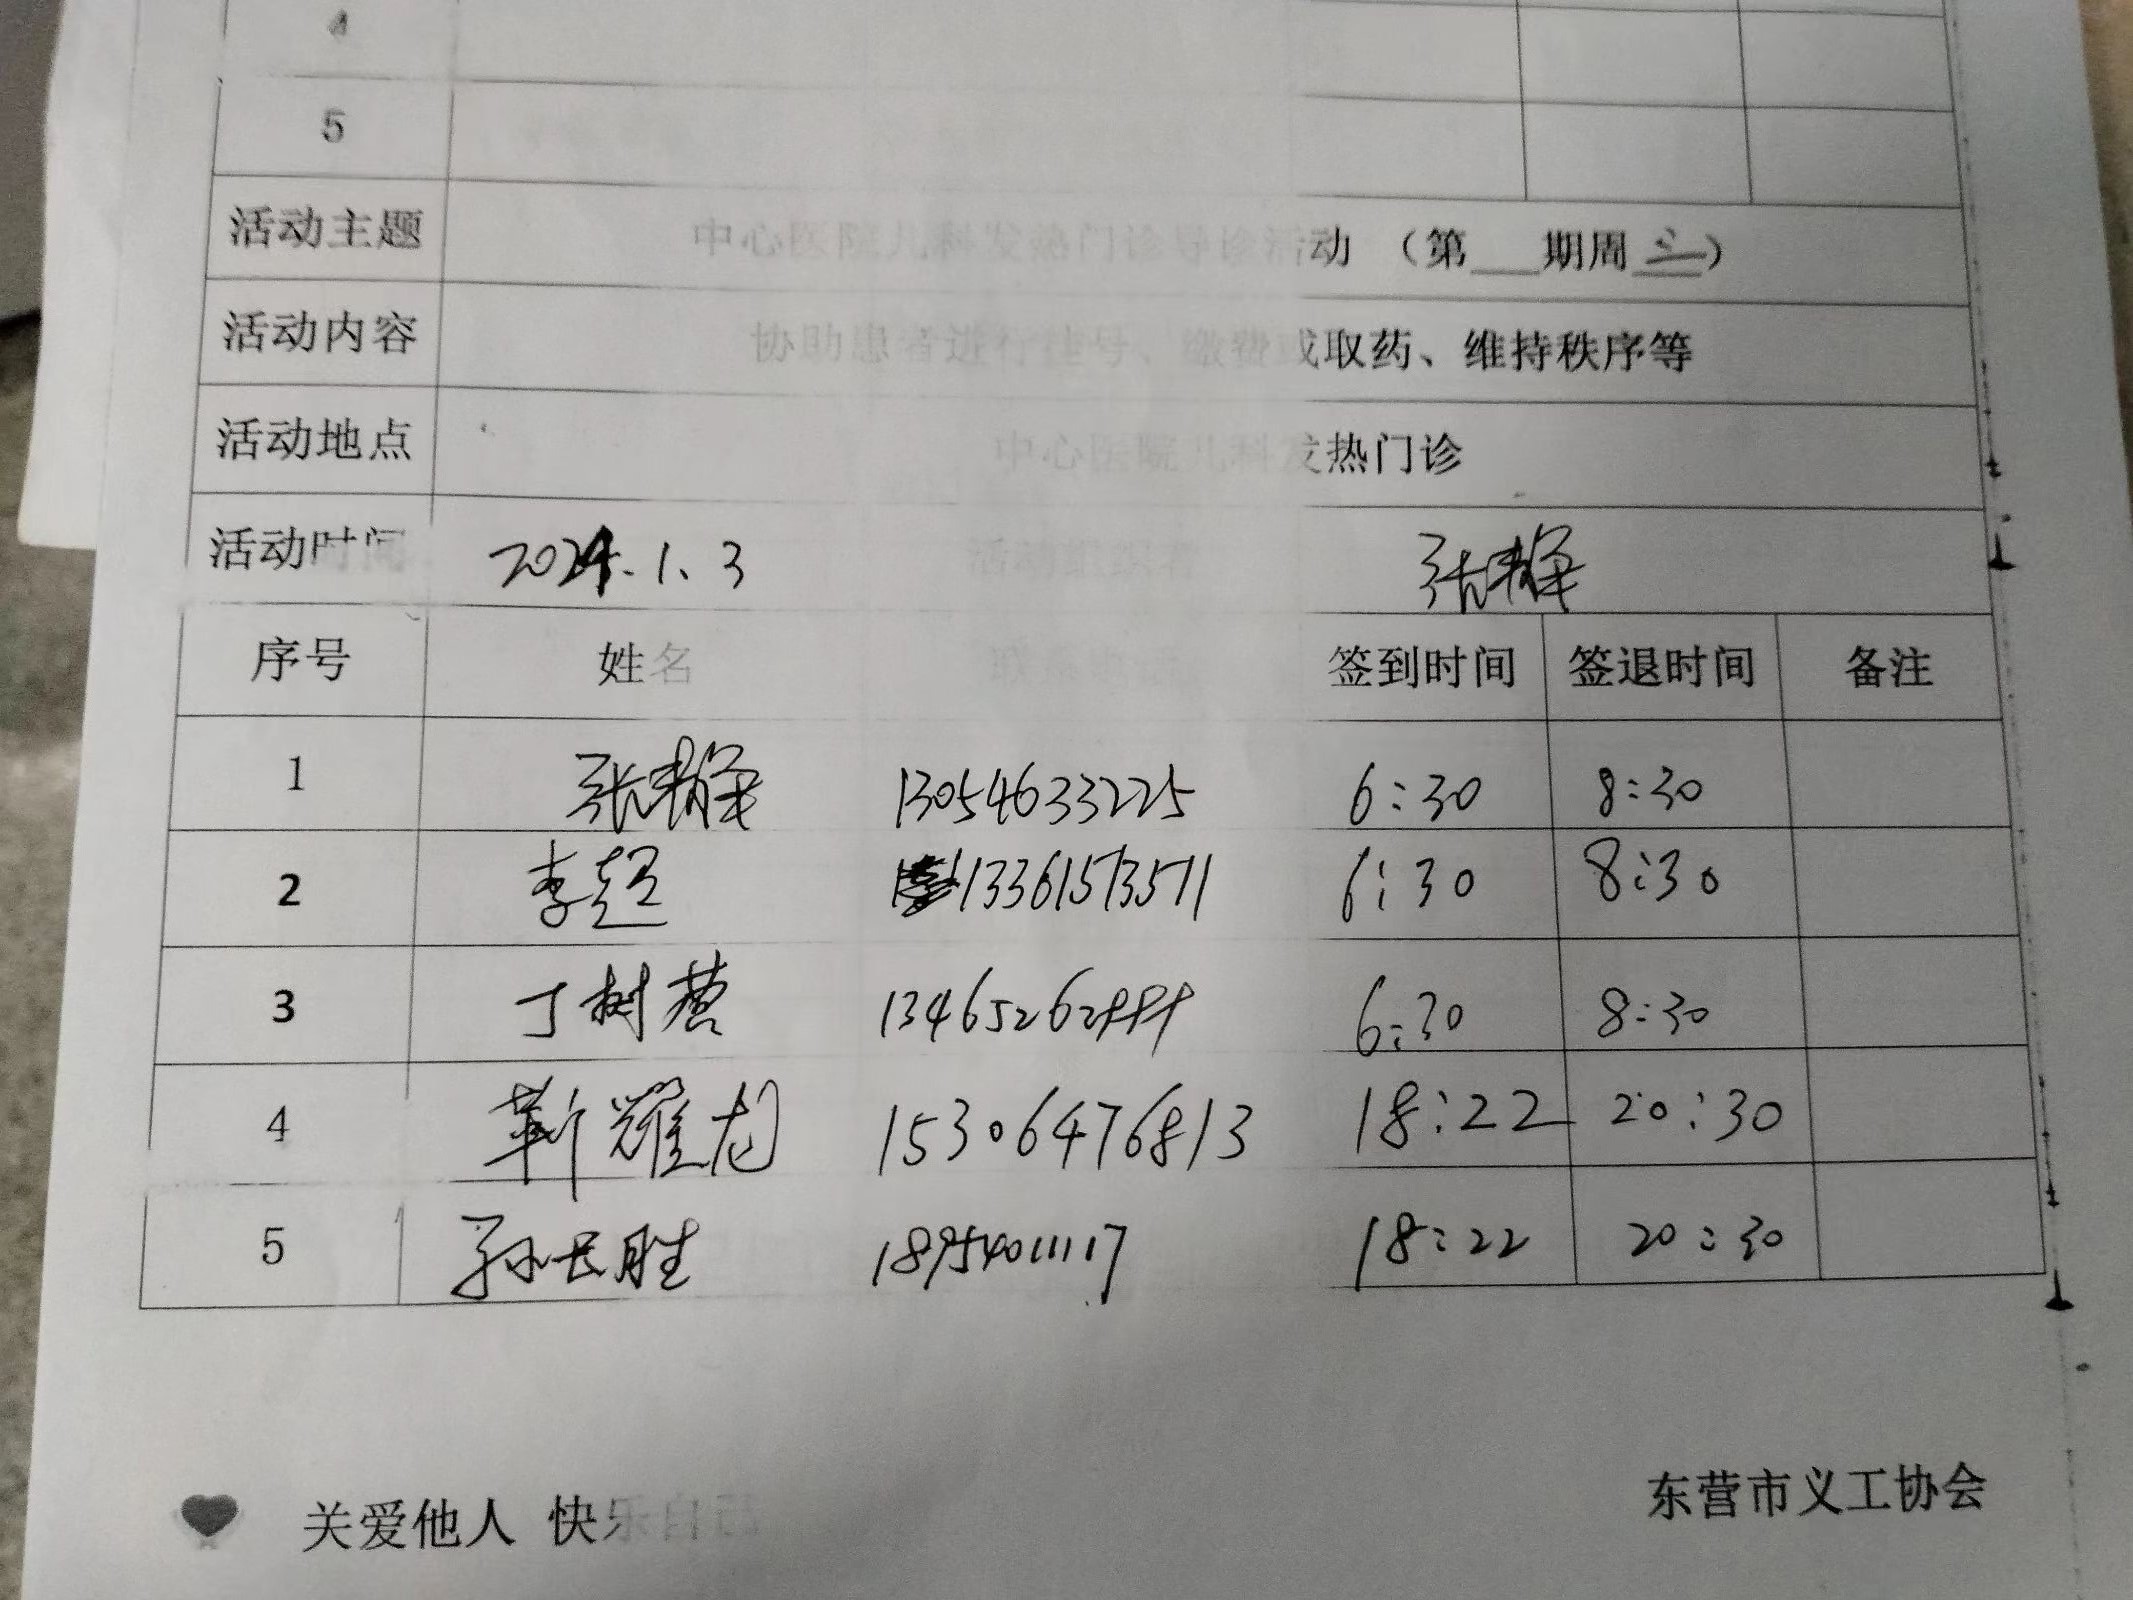 4
5
活动主题 中心医院儿科发热门诊导诊活动 （第___期周三）
活动内容 协助患者进行挂号、缴费或取药、维持秩序等
活动地点 中心医院儿科发热门诊
活动时间 2024.1.3 活动组织者 张静
序号 姓名 联系电话 签到时间 签退时间 备注
1 张静 13054633225 6:30 8:30
2 李超 13361573571 6:30 8:30
3 丁树营 6:30 8:30
4 靳耀龙 15306476813 18:22 20:30
5 孙长胜 18954011117 18:22 20:30
关爱他人 快乐自己
东营市义工协会